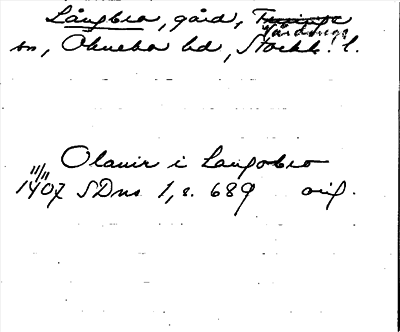 Långbro, gård,
Vårdinge
sn, Öknebo hd, Stockh. l.
Olauir i Langobro
11/11
1407 SDns 1, s. 689 orig.